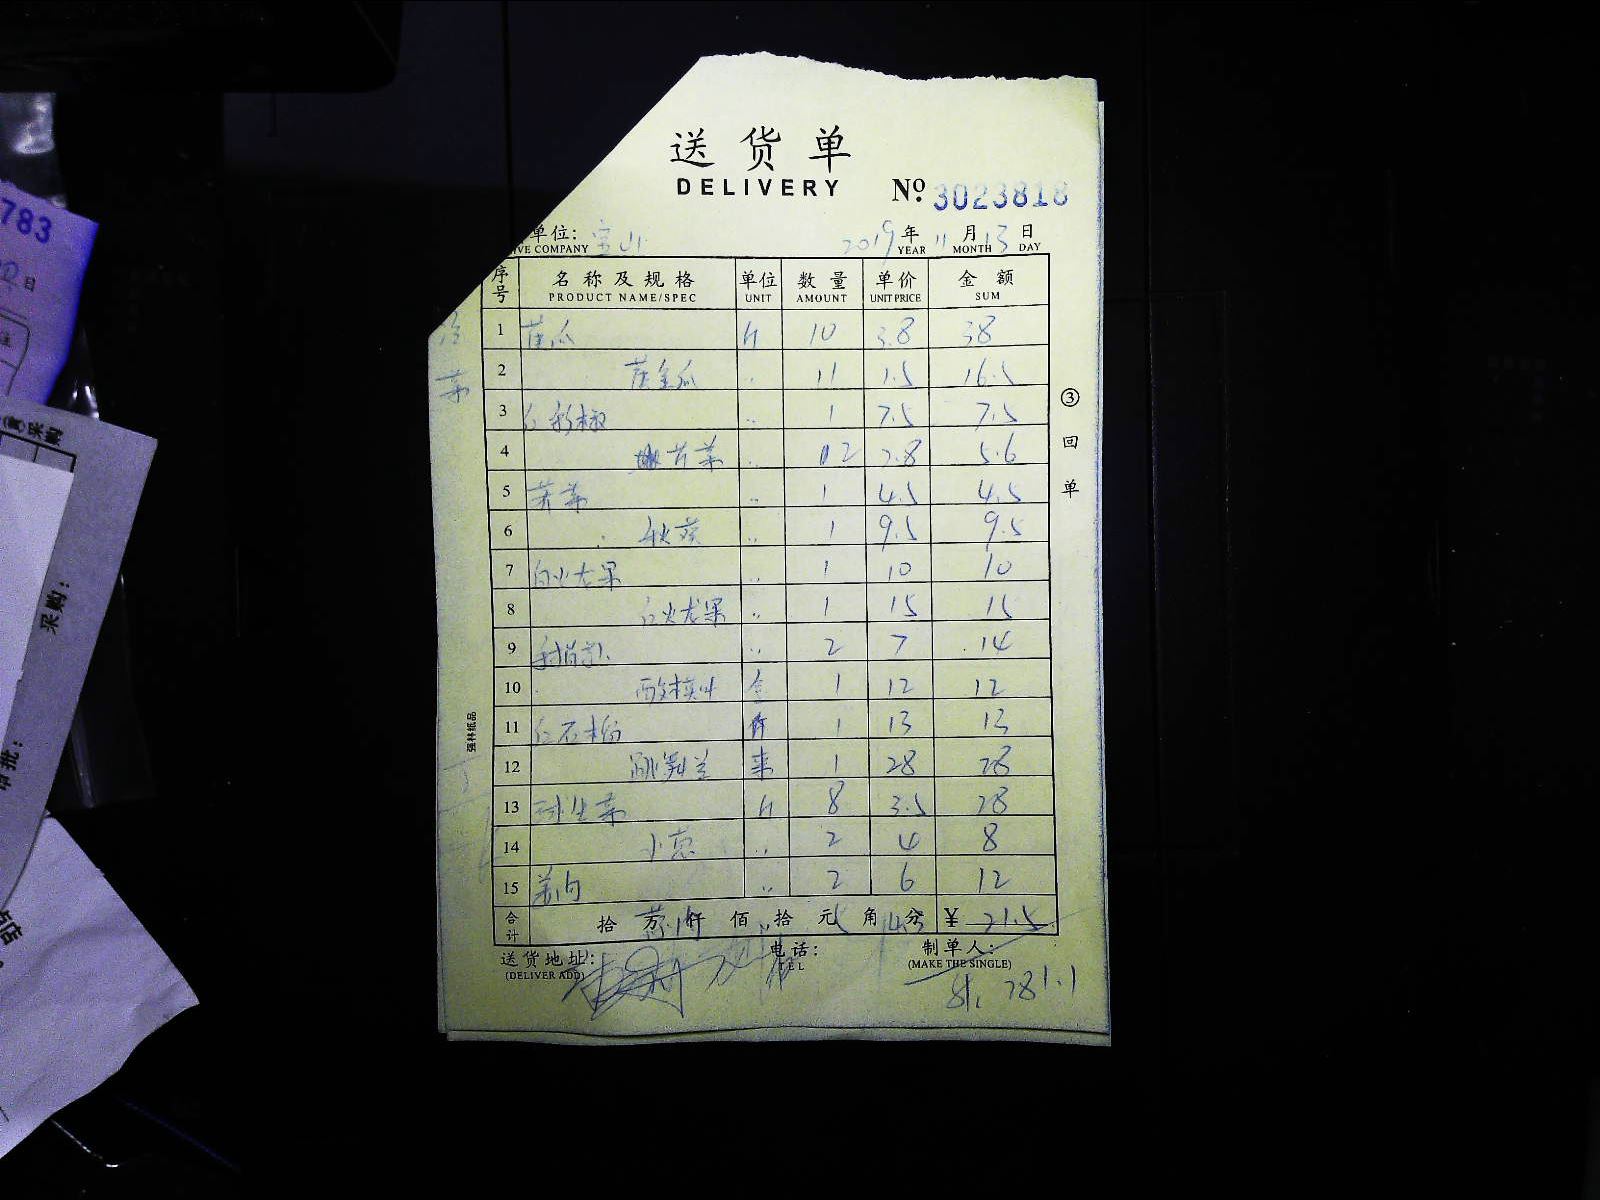 送货单
DELIVERY
No. 3023818
单位: 宝山
IVE COMPANY
2019 年 11 月 13 日
YEAR MONTH DAY
序号 名称及规格 单位 数量 单价 金额
PRODUCT NAME/SPEC UNIT AMOUNT UNIT PRICE SUM
1 10 3.8 38
2 11 1.5 16.5
3 红彩椒 〃 1 7.5 7.5
4 2 2.8 5.6
5 〃 1 4.5 4.5
6 秋葵 〃 1 9.5 9.5
7 白火龙果 〃 1 10 10
8 红火龙果 〃 1 15 15
9 〃 2 7 14
10 酸模叶 1 12 12
11 红石榴 1 13 13
12 跳舞兰 束 1 28 28
13 球生菜 斤 8 3.5 28
14 小葱 〃 2 4 8
15 〃 2 6 12
合计 拾 万 仟 佰 拾 元 角 分 ¥ 21.5
送货地址: 电话: 制单人:
(DELIVER ADD) TEL (MAKE THE SINGLE)
③回单
强林纸品
783
日
采购
采购:
审批: